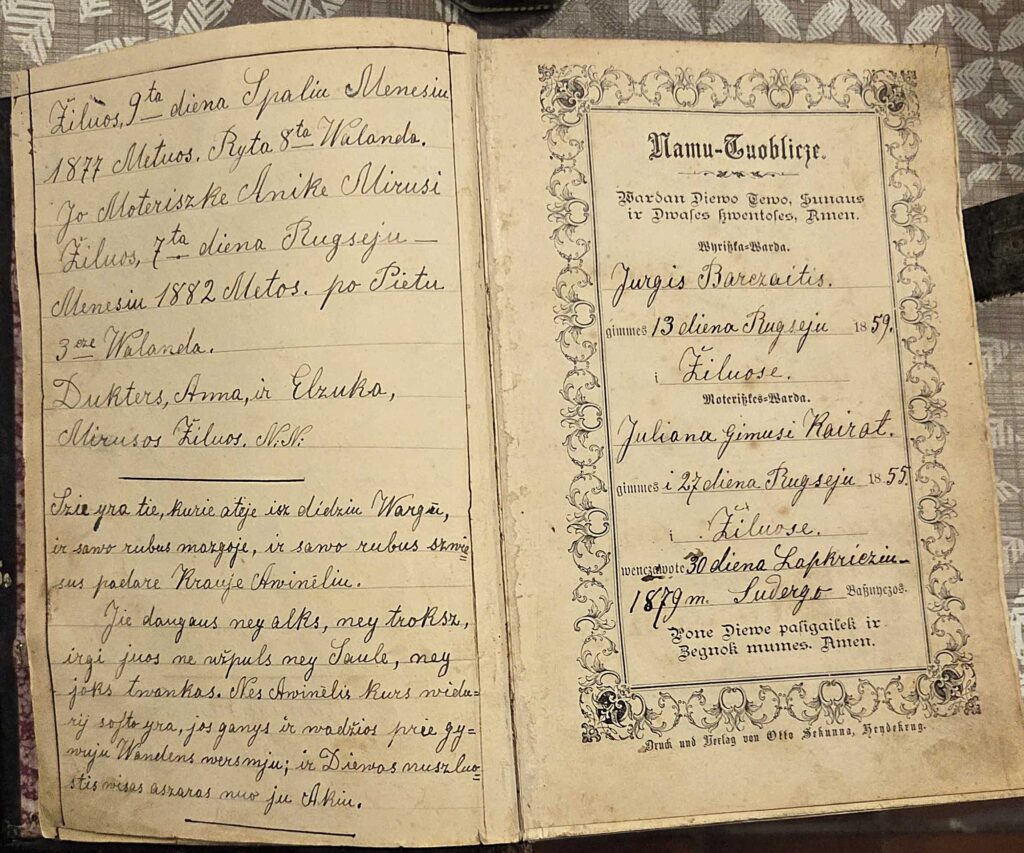 Žiluos, 9ta diena Spaliu Menesiu
1877 Metuos. Ryta 8ta Walanda.
Jo Moteriszke Anike Mirusi
Žiluos, 7ta diena Rugseju –
Menesiu 1882 Metos. po Pietu
3cze Walanda.
Dukters, Anna, ir Elzuka,
Mirusos Žiluos. N.N:
Szie yra tie, kurie atėje isz didziu Wargū,
ir sawo rubus mazgoje, ir sawo rubus szwie
sus padare Krauje Awinėliu.
Jie daugaus ney alks, ney troksz,
irgi juos ne užpuls ney Saule, ney
joks twankas. Nes Awinėlis kurs widu=
rij sosto yra, jos ganys ir wadžios prie gy=
wuju Wandens wersmju; ir Diewas nuszluo=
stis wisas aszaras nuo ju Akiu.
Namu-Tuoblicze.
Wardan Diewo Tewo, Sunaus
ir Dwases ßwentoses, Amen.
Wyrißka-Warda.
Jurgis Barczaitis.
gimmes 13 diena Rugseju 1859.
i Žiluose.
Moterißkes-Warda.
Juliana gimusi Kairat.
gimmes i 27 diena Rugseju 1855.
i Žiluose.
wenczawote 30 diena Lapkricziu–
1879 m. Sudergo Baßnyczos.
Pone Diewe pasigailek ir
Zegnok mumes. Amen.
Druck und Verlag von Otto Sekunna, Heydekrug.